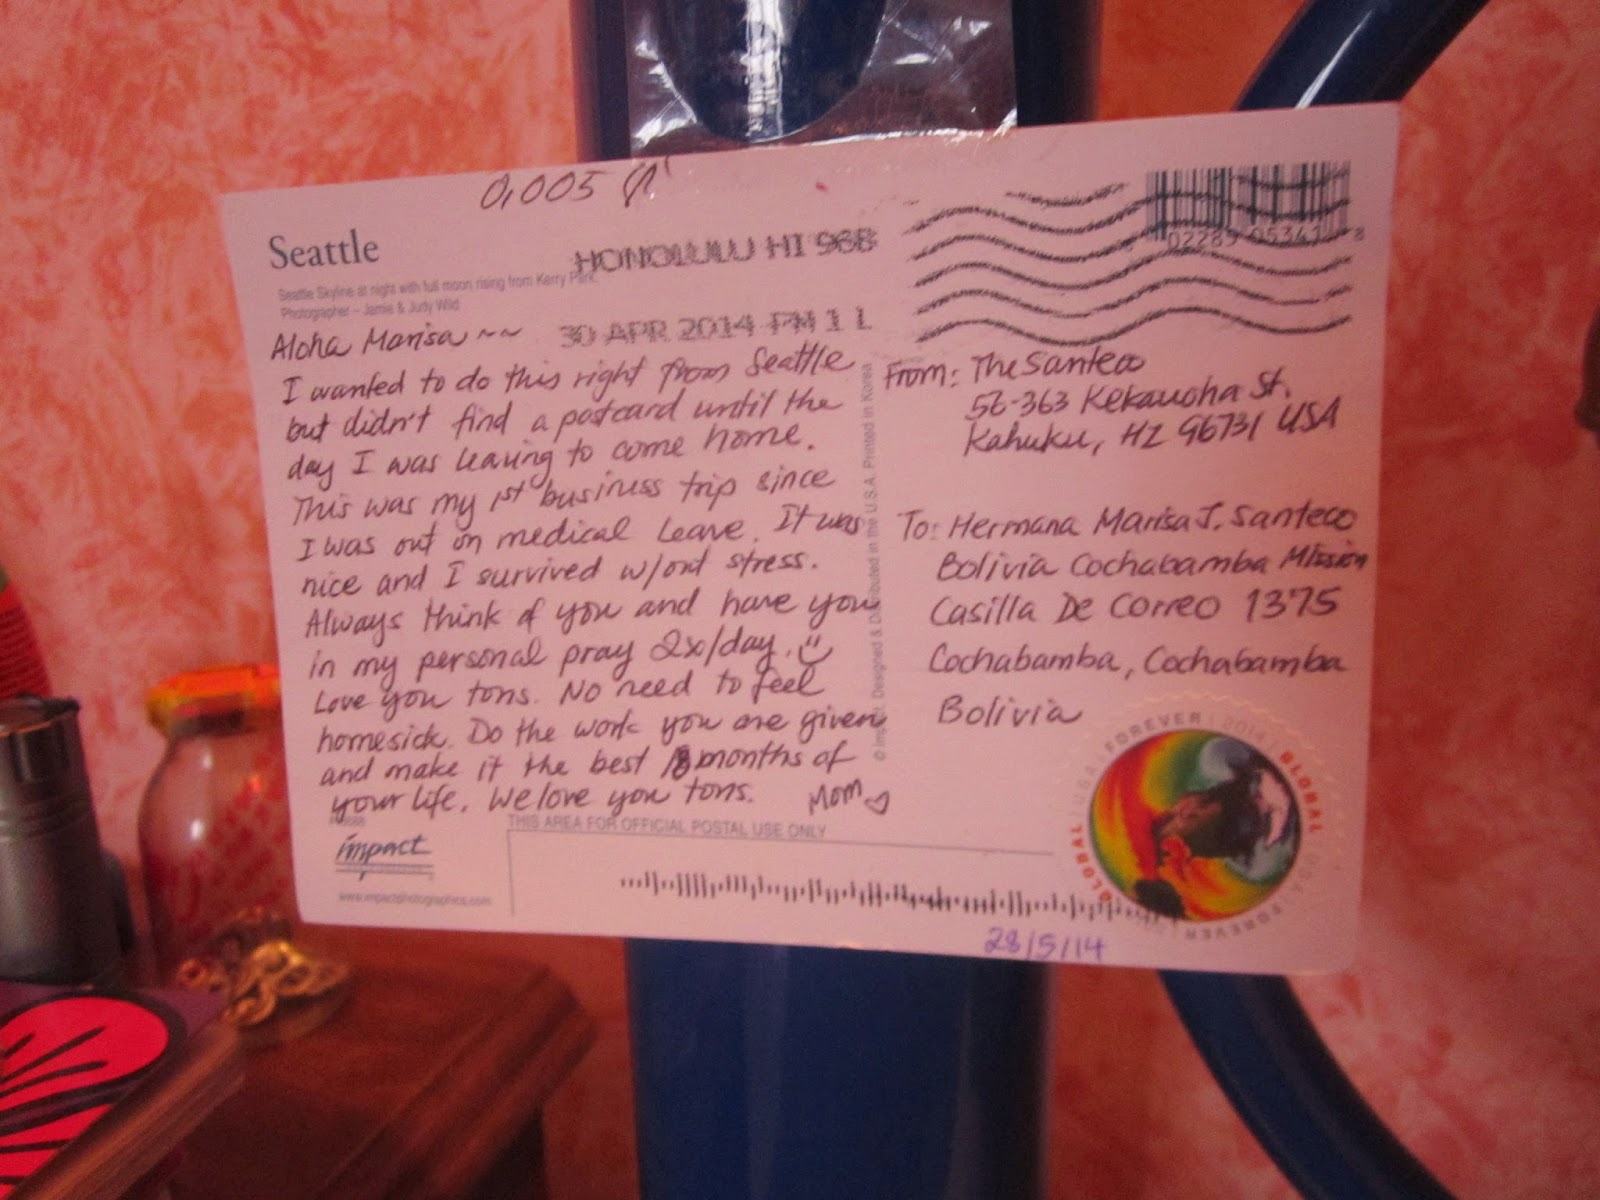 0,005
Seattle
HONOLULU HI 968
Seattle Skyline at night with full moon rising from Kerry Park.
Photographer – Jamie & Judy Wild
30 APR 2014 PM 1 L
Aloha Marisa ~~
I wanted to do this right from Seattle
but didn't find a postcard until the
day I was leaving to come home.
This was my 1st business trip since
I was out on medical leave. It was
nice and I survived w/out stress.
Always think of you and have you
in my personal pray 2x/day.
Love you tons. No need to feel
homesick. Do the work you are given
and make it the best 18 months of
your life. We love you tons. Mom ♡
impact
www.impactphotographics.com
THIS AREA FOR OFFICIAL POSTAL USE ONLY
Designed & Distributed in the U.S.A. Printed in Korea
02289 05341 8
From: The Santeco
56-363 Kekauoha St.
Kahuku, HI 96731 USA
To: Hermana Marisa J. Santeco
Bolivia Cochabamba Mission
Casilla De Correo 1375
Cochabamba, Cochabamba
Bolivia
GLOBAL USA FOREVER 2014 GLOBAL USA FOREVER
28/5/14